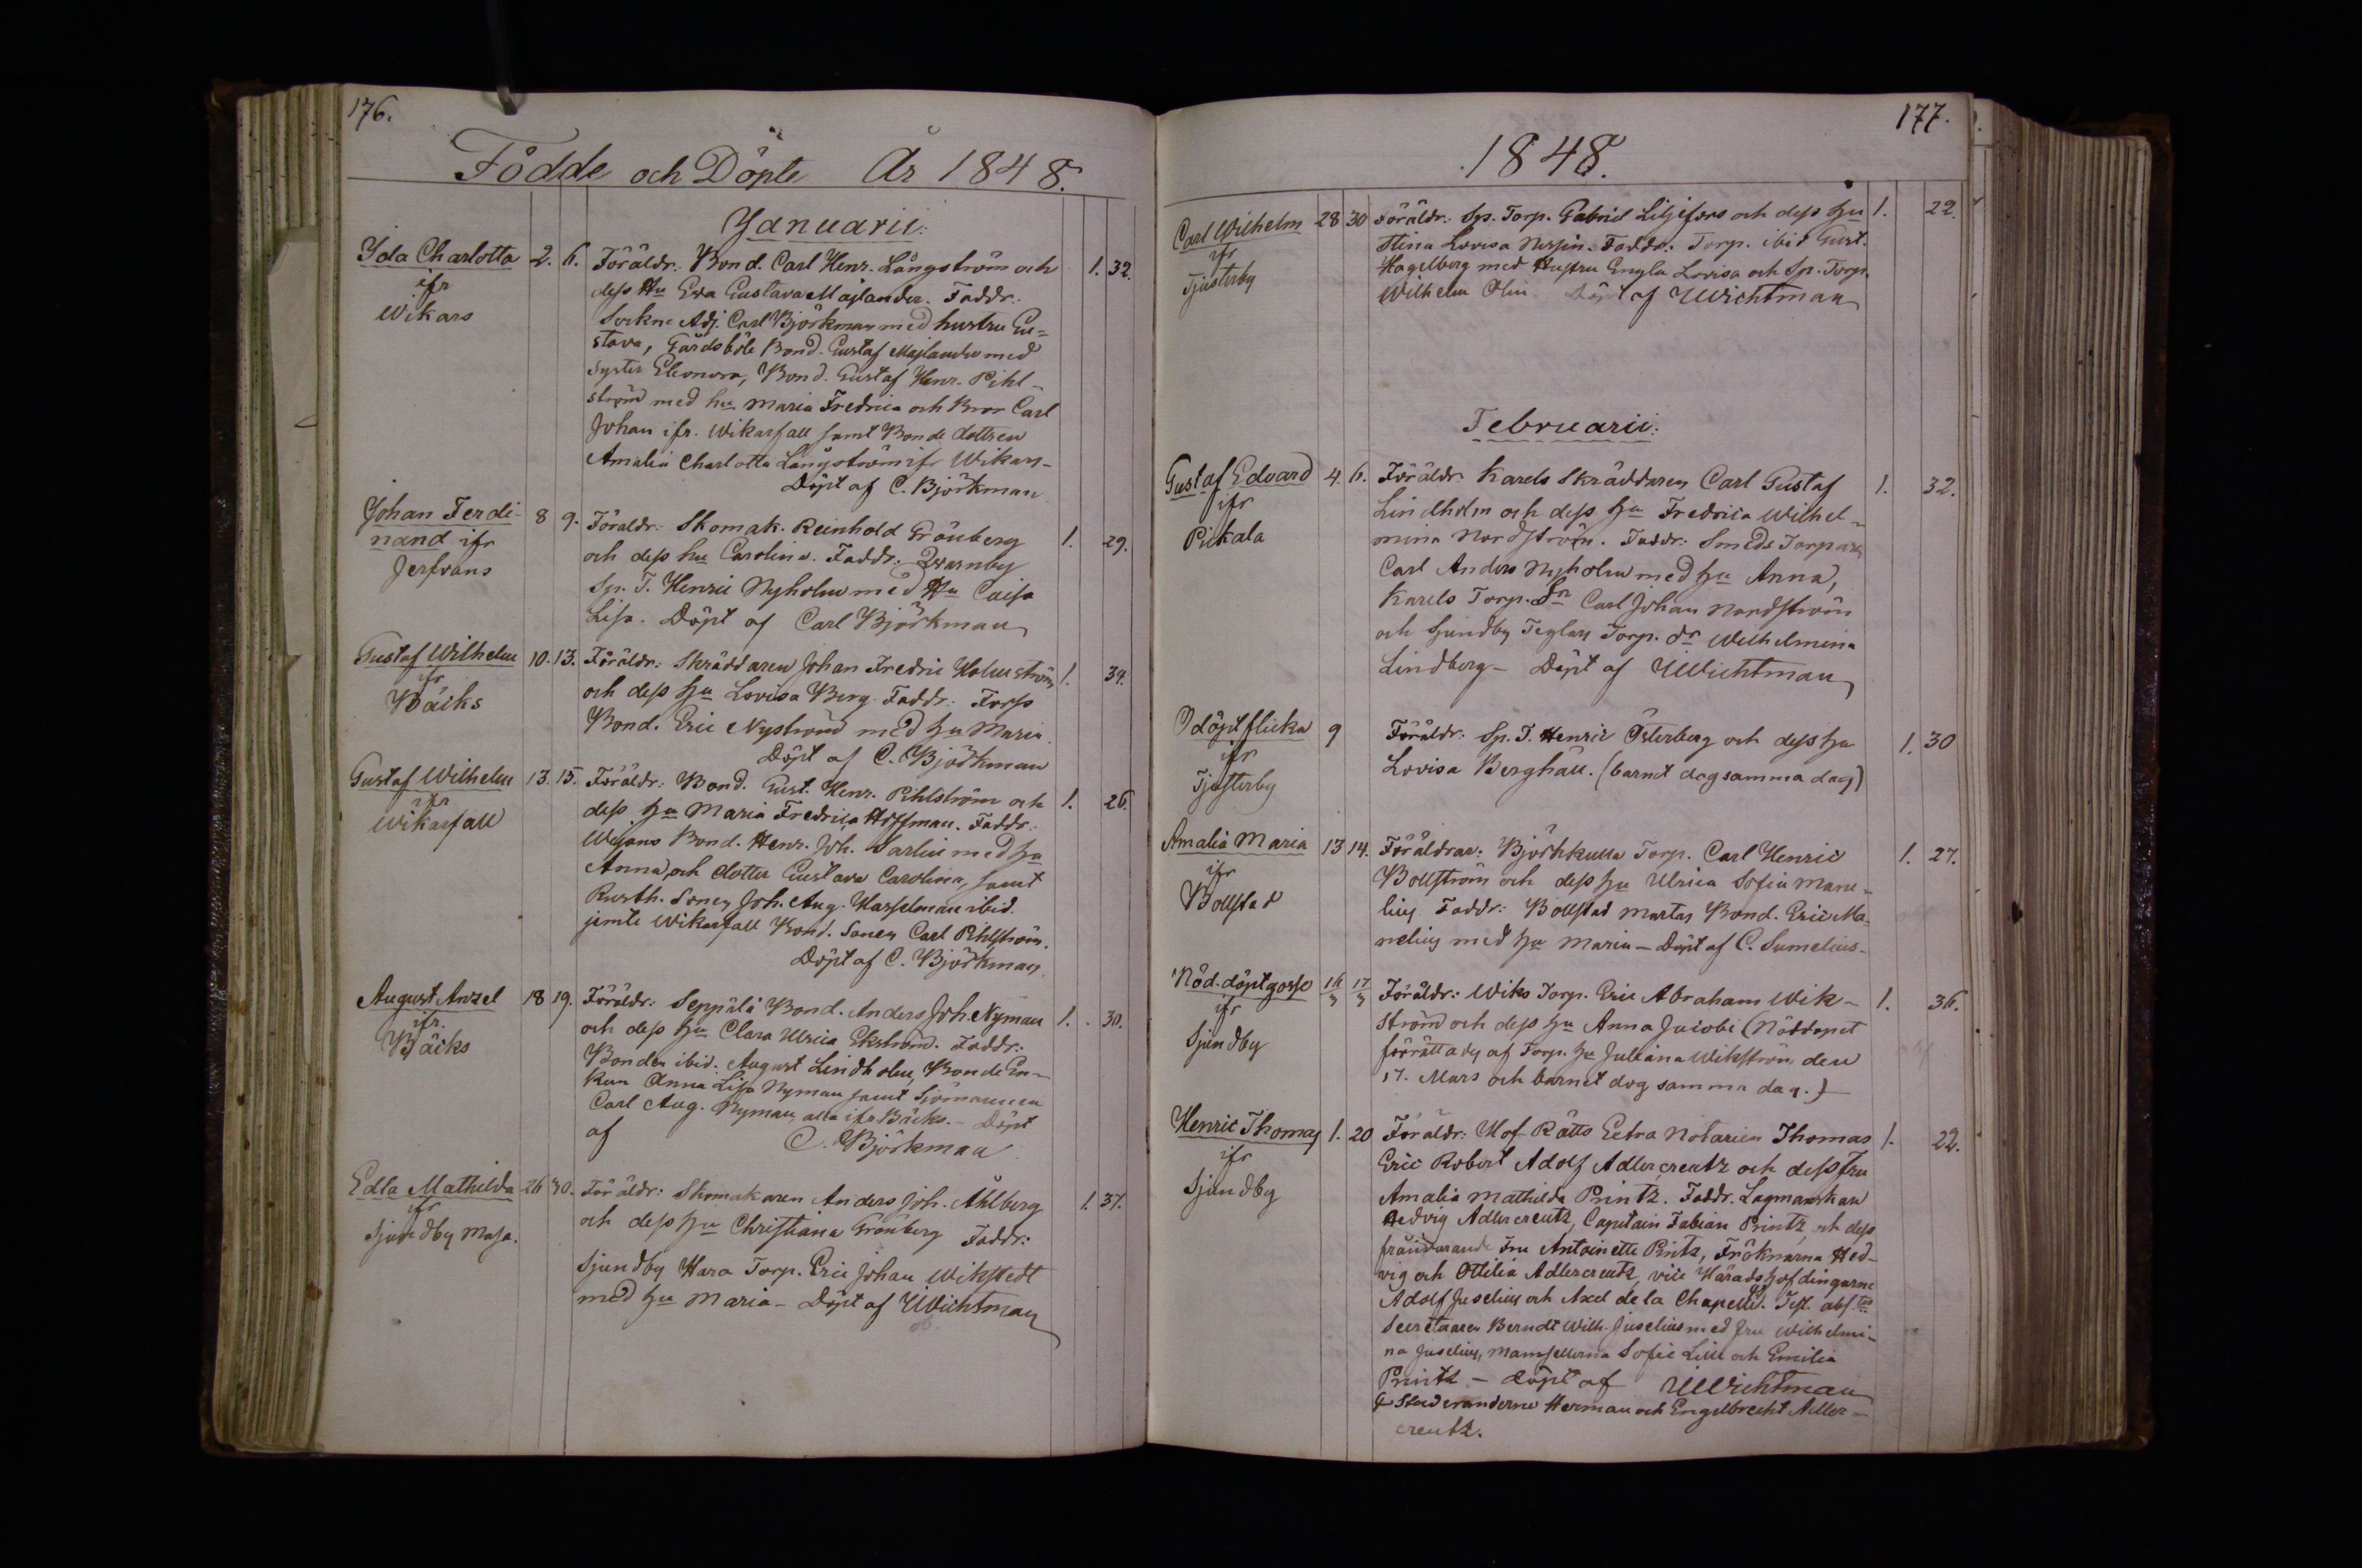 176.
Födde och Döpte År 1848.
Januarii:
Ida Charlotta 2. 6. Föräldr: Bond. Carl Henr. Långström och 1. 32.
ifr dess Hu Eva Gustava Majlander. Faddr:
Wikars Sockne Adj. Carl Björkman med hustru Gu=
stava, Gårdsböle Bond. Gustaf Majlander med
syster Eleonora, Bond. Gustaf Henr. Pihl-
ström med hu Maria Fredrica och Bror Carl
Johan ifr. Wikarfall samt Bonde dottren
Amalia Charlotta Långström ifr Wikars-
Döpt af C. Björkman
Johan Ferdi- 8 9. Föräldr: Skomak. Reinhold Grönberg 1. 29.
nand ifr och dess hu Carolina. Faddr: Qvarnby
Jerfvans Sp. T. Henric Nyholm med Hu Caisa
Lisa. Döpt af Carl Björkman
Gustaf Wilhelm 10. 13. Föräldr: Skräddaren Johan Fredric Holmström 1. 34.
ifr och dess hu Lovisa Berg. Faddr: Forss
Bäcks Bond. Eric Nyström med hu Maria.
Döpt af C. Björkman
Gustaf Wilhelm 13. 15. Föräldr: Bond. Gust. Henr. Pihlström och 1. 26.
ifr dess hu Maria Fredrica Hoffman. Faddr:
Wikarfall Bond. Henr. Joh. Sarlin med hu
Anna, och dotter Gustava Carolina, samt
Rusth. Sonen Joh. Aug. Hasselman ibid.
jemte Wikarfall Bond. Sonen Carl Pihlström.
Döpt af C. Björkman
August Axel 18 19. Föräldr: Seppälä Bond. Anders Joh. Nyman 1. 30.
ifr. och dess hu Clara Ulrica Ekström. Faddr:
Bäcks Bonden ibid. August Lindholm, Bonde En-
kan Anna Lisa Nyman samt Sjömannen
Carl Aug. Nyman, alla ifr Bäcks. - Döpt
af C. Björkman
Edla Mathilda 26 30. Föräldr: Skomakaren Anders Joh. Åhlberg 1. 37.
ifr och dess hu Christiana Grönberg Faddr:
Sjundby Masa. Sjundby Hara Torp. Eric Johan Wikstedt
med hu Maria - Döpt af UWichtman
177.
1848.
Carl Wilhelm 28 30 Föräldr: Sp. Torp. Gabriel Liljefors och dess hu 1. 22.
ifr Stina Lovisa. Faddr. Torp. ibid Gust.
Tjusterby Hagelberg med Hustru Engla Lovisa och Sp. Torp.
Wilhelm Olin. Döpt af UWichtman
Februarii:
Gustaf Edvard 4. 6. Föräldr: Karels Skräddaren Carl Gustaf 1. 32.
ifr Lindholm och dess hu Fredrica Wilhel-
Pickala mina Nordström. Faddr: Smeds Torparen
Carl Anders Nyholm med hu Anna,
Karels Torp. Sn Carl Johan Nordström
och Sjundby Teglars Torp. dr Wilhelmina
Lindberg - Döpt af UWichtman
Odöpt flicka 9 Föräldr: Sp. T. Henric Österberg och dess hu 1. 30
ifr Lovisa Berghäll. (barnet dog samma dag)
Tjusterby
Amalia Maria 13 14. Föräldrar: Björkkulla Torp. Carl Henric 1. 27.
ifr Bollström och dess hu Ulrica Sofia Mane-
Bollstad lius. Faddr: Bollstad Martas Bond. Eric Ma-
nelius med hu Maria - Döpt af C. Sumelius-
Nöd. döpt gosse 16/3 17/3 Föräldr: Wiks Torp. Eric Abraham Wik- 1. 36.
ifr ström och dess hu Anna Jacobi (Nöddopet
Sjundby förrättadt af Torp. hu Juliana Wikström den
17. Mars och barnet dog samma dag.)
Henric Thomas 1. 20 Föräldr: Hof Rätts Extra Notarien Thomas 1. 22.
ifr Eric Robert Adolf Adlercreutz och dess Fru
Sjundby Amalia Mathilda Printz. Faddr. Lagmanskan
Hedvig Adlercreutz, Capitain Fabian Printz, och dess
frånvarande Fru Antoinette Printz, Fröknarna Hed-
vig och Ottilia Adlercreutz, vice Häradshöfdingarne
Adolf Juselius och Axel de la Chapelle. Test. abs.tes
Secretaren Berndt Wilh. Juselius med fru Wilhelmi-
na Juselius, Mamsellerna Sofie Lill och Emilia
Printz - Döpt af UWichtman
Studeranderne Herman och Engelbrecht Adler-
creutz.